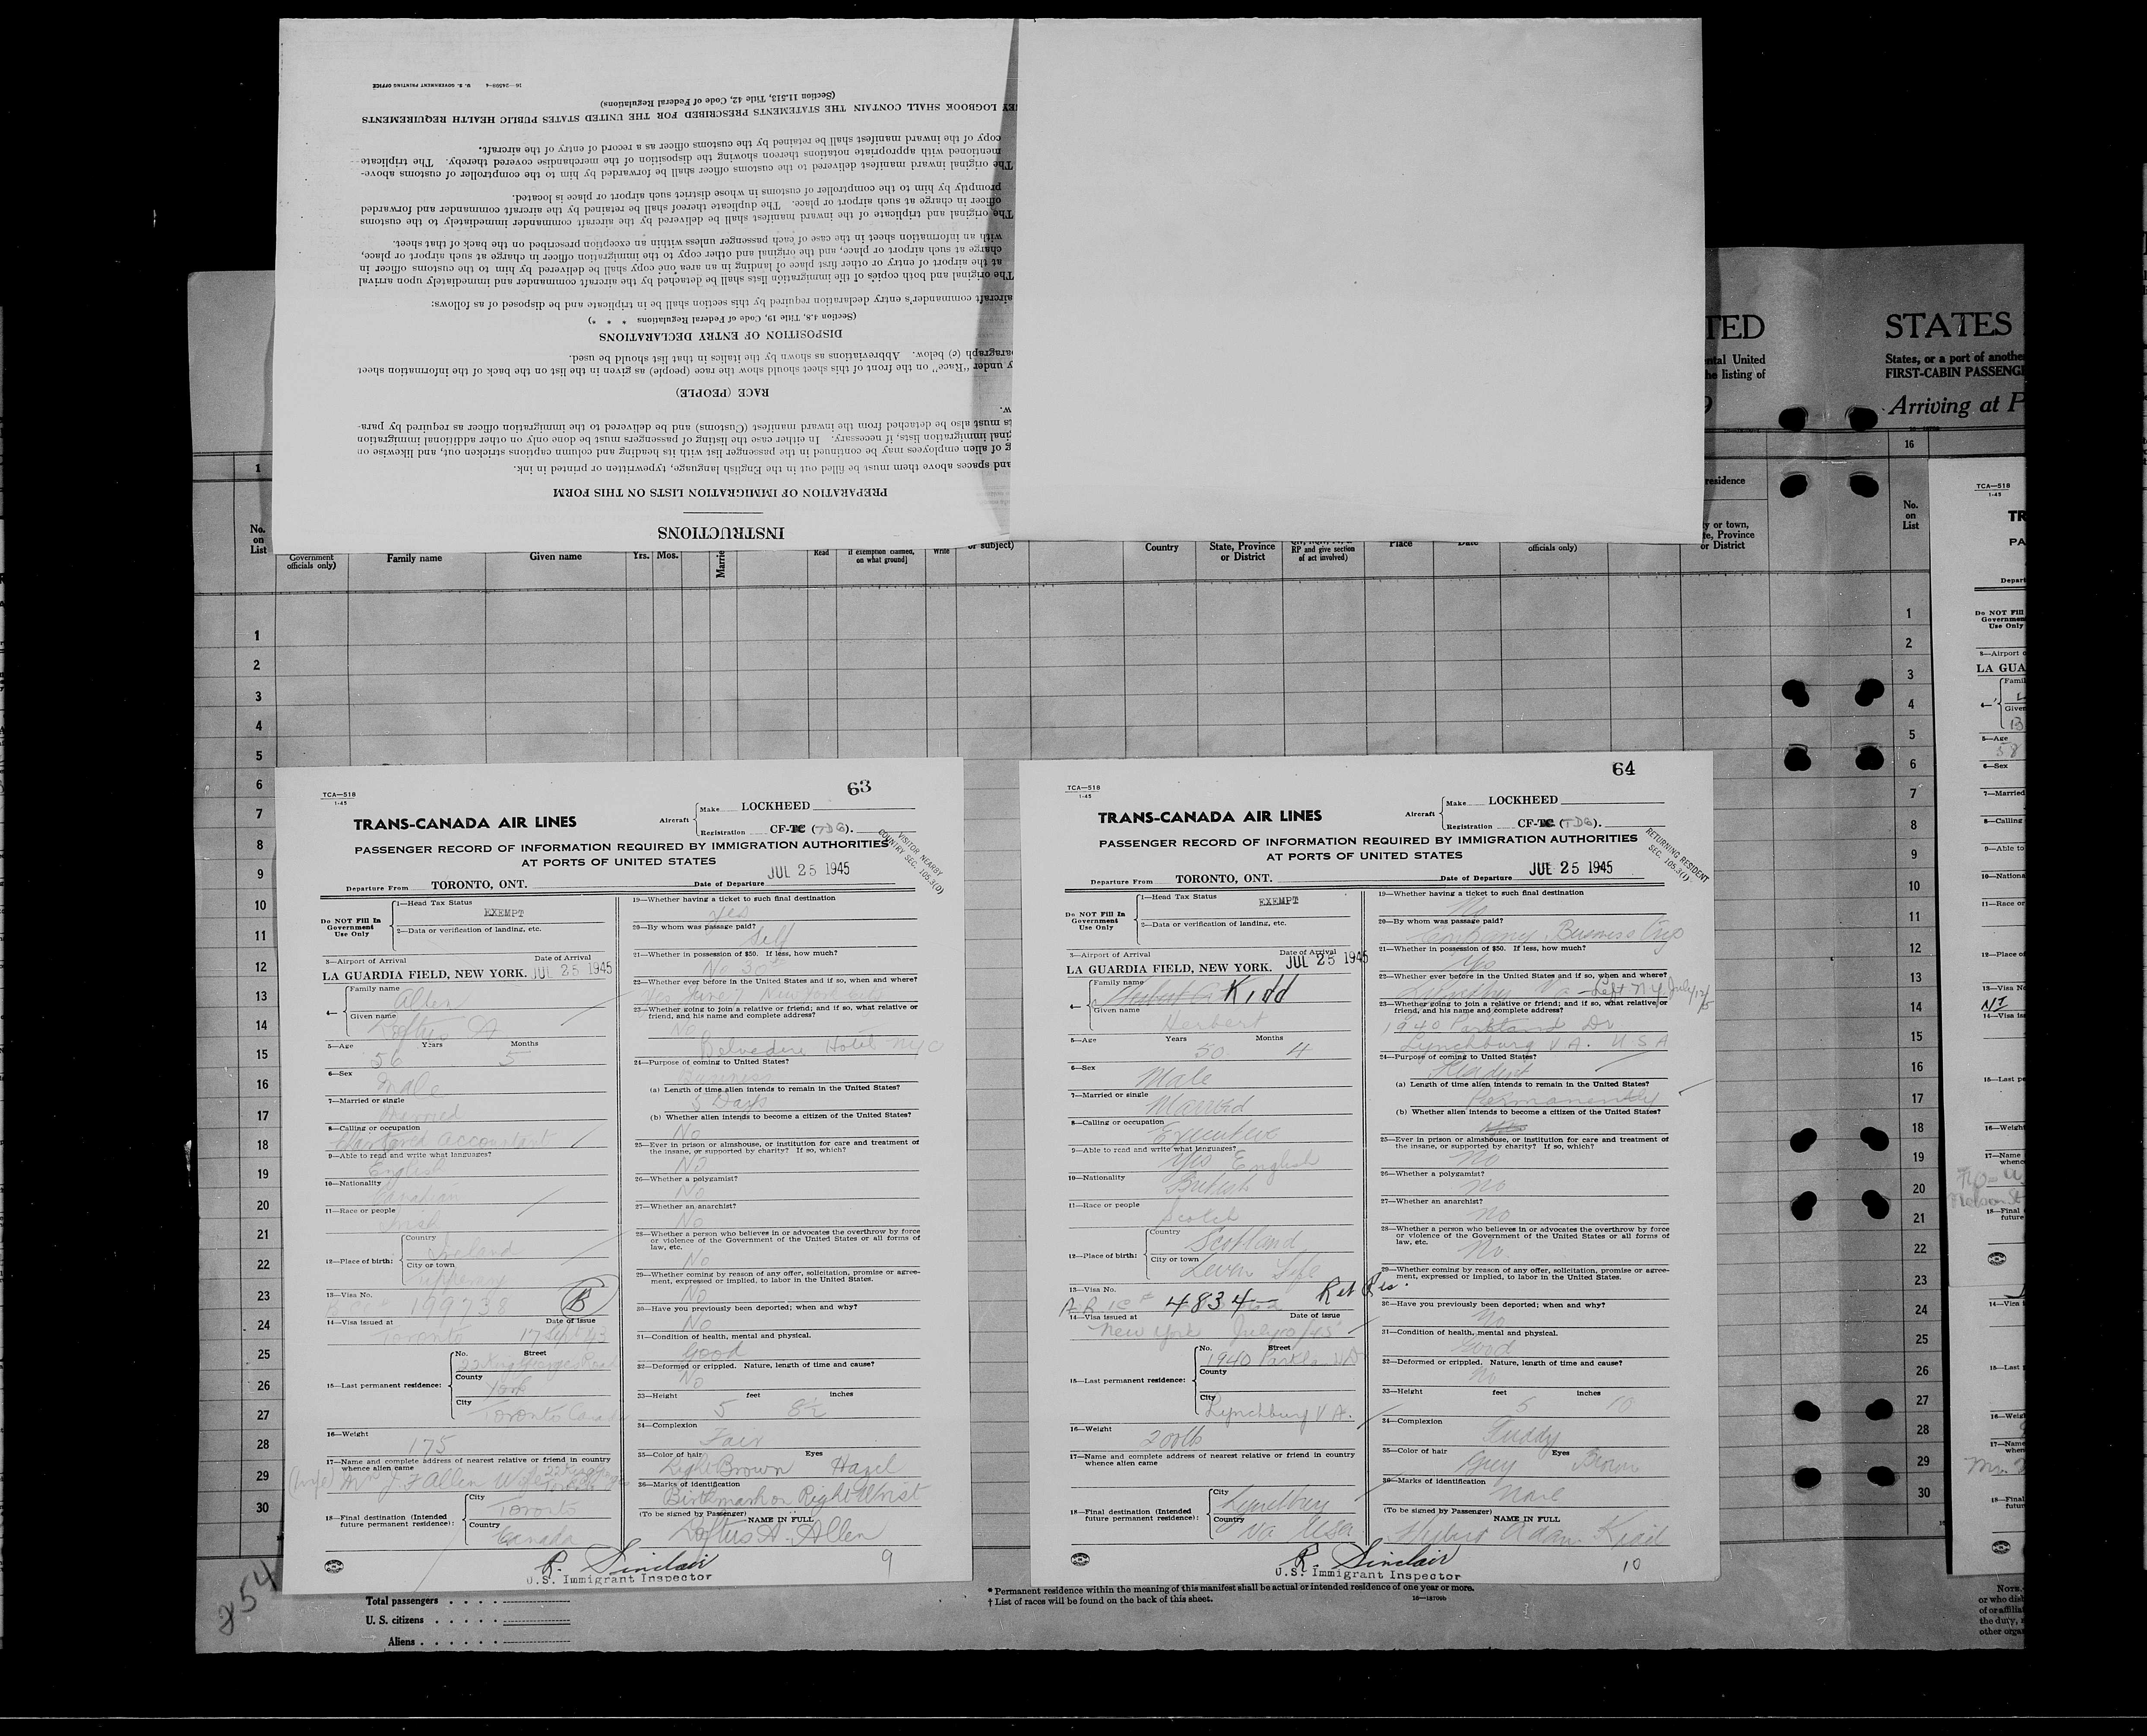 INSTRUCTIONS
PREPARATION OF IMMIGRATION LISTS ON THIS FORM
and spaces above them must be filled out in the English language, typewritten or printed in ink.
g of alien employees may be continued in the passenger list with its heading and column captions stricken out, and likewise on
ginal immigration lists, if necessary. In either case the listing of passengers must be done only on other additional immigration
ts must also be detached from the inward manifest (Customs) and be delivered to the immigration officer as required by para-
w.
RACE (PEOPLE)
y under "Race" on the front of this sheet should show the race (people) as given in the list on the back of the information sheet
paragraph (c) below. Abbreviations as shown by the italics in that list should be used.
DISPOSITION OF ENTRY DECLARATIONS
(Section 4.8, Title 19, Code of Federal Regulations * * *)
aircraft commander's entry declaration required by this section shall be in triplicate and be disposed of as follows:
The original and both copies of the immigration lists shall be detached by the aircraft commander and immediately upon arrival
at the airport of entry or other first place of landing in an area one copy shall be delivered by him to the customs officer in
charge at such airport or place, and the original and other copy to the immigration officer in charge at such airport or place,
with an information sheet in the case of each passenger unless within an exception prescribed on the back of that sheet.
The original and triplicate of the inward manifest shall be delivered by the aircraft commander immediately to the customs
officer in charge at such airport or place. The duplicate thereof shall be retained by the aircraft commander and forwarded
promptly by him to the comptroller of customs in whose district such airport or place is located.
The original inward manifest delivered to the customs officer shall be forwarded by him to the comptroller of customs above-
mentioned with appropriate notations thereon showing the disposition of the merchandise covered thereby. The triplicate
copy of the inward manifest shall be retained by the customs officer as a record of entry of the aircraft.
EY LOGBOOK SHALL CONTAIN THE STATEMENTS PRESCRIBED FOR THE UNITED STATES PUBLIC HEALTH REQUIREMENTS
(Section 11.513, Title 42, Code of Federal Regulations)
16—24509-4 U. S. GOVERNMENT PRINTING OFFICE
TED STATES
ntal United States, or a port of anothe
he listing of FIRST-CABIN PASSENG
Arriving at P
1 16
No. on List
Government officials only)
Family name
Given name
Yrs. Mos.
Marrie
Read
if exemption claimed, on what ground]
Write
or subject)
Country
State, Province or District
RP and give section of act involved)
Place
Date
officials only)
residence
y or town,
te, Province
or District
No. on List
1
2
3
4
5
6
7
8
9
10
11
12
13
14
15
16
17
18
19
20
21
22
23
24
25
26
27
28
29
30
63
TCA—518
1-45
TRANS-CANADA AIR LINES
Aircraft
Make LOCKHEED
Registration CF-TC (TDB).
PASSENGER RECORD OF INFORMATION REQUIRED BY IMMIGRATION AUTHORITIES
AT PORTS OF UNITED STATES
VISITOR NEARBY
COUNTRY SEC. 105.3(0)
Departure From TORONTO, ONT. Date of Departure JUL 25 1945
Do NOT Fill In
Government
Use Only
1—Head Tax Status
EXEMPT
2—Data or verification of landing, etc.
3—Airport of Arrival Date of Arrival
LA GUARDIA FIELD, NEW YORK. JUL 25 1945
4— Family name
Allen
Given name
Loftus A
5—Age Years Months
56 5
6—Sex
Male
7—Married or single
Married
8—Calling or occupation
Chartered Accountant
9—Able to read and write what languages?
English
10—Nationality
Canadian
11—Race or people
Irish
12—Place of birth:
Country
Ireland
City or town
Tipperary
13—Visa No.
199738 B
14—Visa issued at Date of issue
Toronto 17 Sept 43
15—Last permanent residence:
No. Street
22 King Georges Road
County
York
City
Toronto Canada
16—Weight
175
17—Name and complete address of nearest relative or friend in country
whence alien came
(Wife) Mrs J. F Allen
18—Final destination (Intended
future permanent residence):
City
Toronto
Country
Canada
19—Whether having a ticket to such final destination
yes
20—By whom was passage paid?
Self
21—Whether in possession of $50. If less, how much?
No 30
22—Whether ever before in the United States and if so, when and where?
Yes June 7 New York
23—Whether going to join a relative or friend; and if so, what relative or
friend, and his name and complete address?
No
Belvedere Hotel NYC
24—Purpose of coming to United States?
Business
(a) Length of time alien intends to remain in the United States?
5 Days
(b) Whether alien intends to become a citizen of the United States?
No
25—Ever in prison or almshouse, or institution for care and treatment of
the insane, or supported by charity? If so, which?
No
26—Whether a polygamist?
No
27—Whether an anarchist?
No
28—Whether a person who believes in or advocates the overthrow by force
or violence of the Government of the United States or all forms of
law, etc.
No
29—Whether coming by reason of any offer, solicitation, promise or agree-
ment, expressed or implied, to labor in the United States.
No
30—Have you previously been deported; when and why?
No
31—Condition of health, mental and physical.
Good
32—Deformed or crippled. Nature, length of time and cause?
No
33—Height feet inches
5 8½
34—Complexion
Fair
35—Color of hair Eyes
Light Brown Hazel
36—Marks of identification
Birthmark on Right Wrist
(To be signed by Passenger) NAME IN FULL
Loftus A. Allen
R. Sinclair 9
U.S. Immigrant Inspector
64
TCA—518
1-45
TRANS-CANADA AIR LINES
Aircraft
Make LOCKHEED
Registration CF-TC (TDB).
PASSENGER RECORD OF INFORMATION REQUIRED BY IMMIGRATION AUTHORITIES
AT PORTS OF UNITED STATES
RETURNING RESIDENT
SEC. 105.3(1)
Departure From TORONTO, ONT. Date of Departure JUL 25 1945
Do NOT Fill In
Government
Use Only
1—Head Tax Status
EXEMPT
2—Data or verification of landing, etc.
3—Airport of Arrival Date of Arrival
LA GUARDIA FIELD, NEW YORK. JUL 25 1945
4— Family name
Kidd
Given name
Herbert
5—Age Years Months
50 4
6—Sex
Male
7—Married or single
Married
8—Calling or occupation
Executive
9—Able to read and write what languages?
Yes English
10—Nationality
British
11—Race or people
Scotch
12—Place of birth:
Country
Scotland
City or town
Leven Fife
13—Visa No.
4834 Ret Res.
14—Visa issued at Date of issue
New York July 10/45
15—Last permanent residence:
No. Street
1940 Parkland Dr
County
City
Lynchburg VA.
16—Weight
200lb
17—Name and complete address of nearest relative or friend in country
whence alien came
18—Final destination (Intended
future permanent residence):
City
Lynchburg
Country
Va USA
19—Whether having a ticket to such final destination
20—By whom was passage paid?
Company Business Trip
21—Whether in possession of $50. If less, how much?
Yes
22—Whether ever before in the United States and if so, when and where?
Lynchburg Va — Left N.Y. July
23—Whether going to join a relative or friend; and if so, what relative or
friend, and his name and complete address?
1940 Parkland Dr
Lynchburg VA. USA
24—Purpose of coming to United States?
(a) Length of time alien intends to remain in the United States?
Permanently
(b) Whether alien intends to become a citizen of the United States?
25—Ever in prison or almshouse, or institution for care and treatment of
the insane, or supported by charity? If so, which?
No
26—Whether a polygamist?
No
27—Whether an anarchist?
No
28—Whether a person who believes in or advocates the overthrow by force
or violence of the Government of the United States or all forms of
law, etc.
No
29—Whether coming by reason of any offer, solicitation, promise or agree-
ment, expressed or implied, to labor in the United States.
30—Have you previously been deported; when and why?
No
31—Condition of health, mental and physical.
Good
32—Deformed or crippled. Nature, length of time and cause?
No
33—Height feet inches
5 10
34—Complexion
Ruddy
35—Color of hair Eyes
Grey Brown
36—Marks of identification
None
(To be signed by Passenger) NAME IN FULL
Herbert Adam Kidd
R. Sinclair 10
U.S. Immigrant Inspector
254
Total passengers
U. S. citizens
Aliens
* Permanent residence within the meaning of this manifest shall be actual or intended residence of one year or more.
† List of races will be found on the back of this sheet.